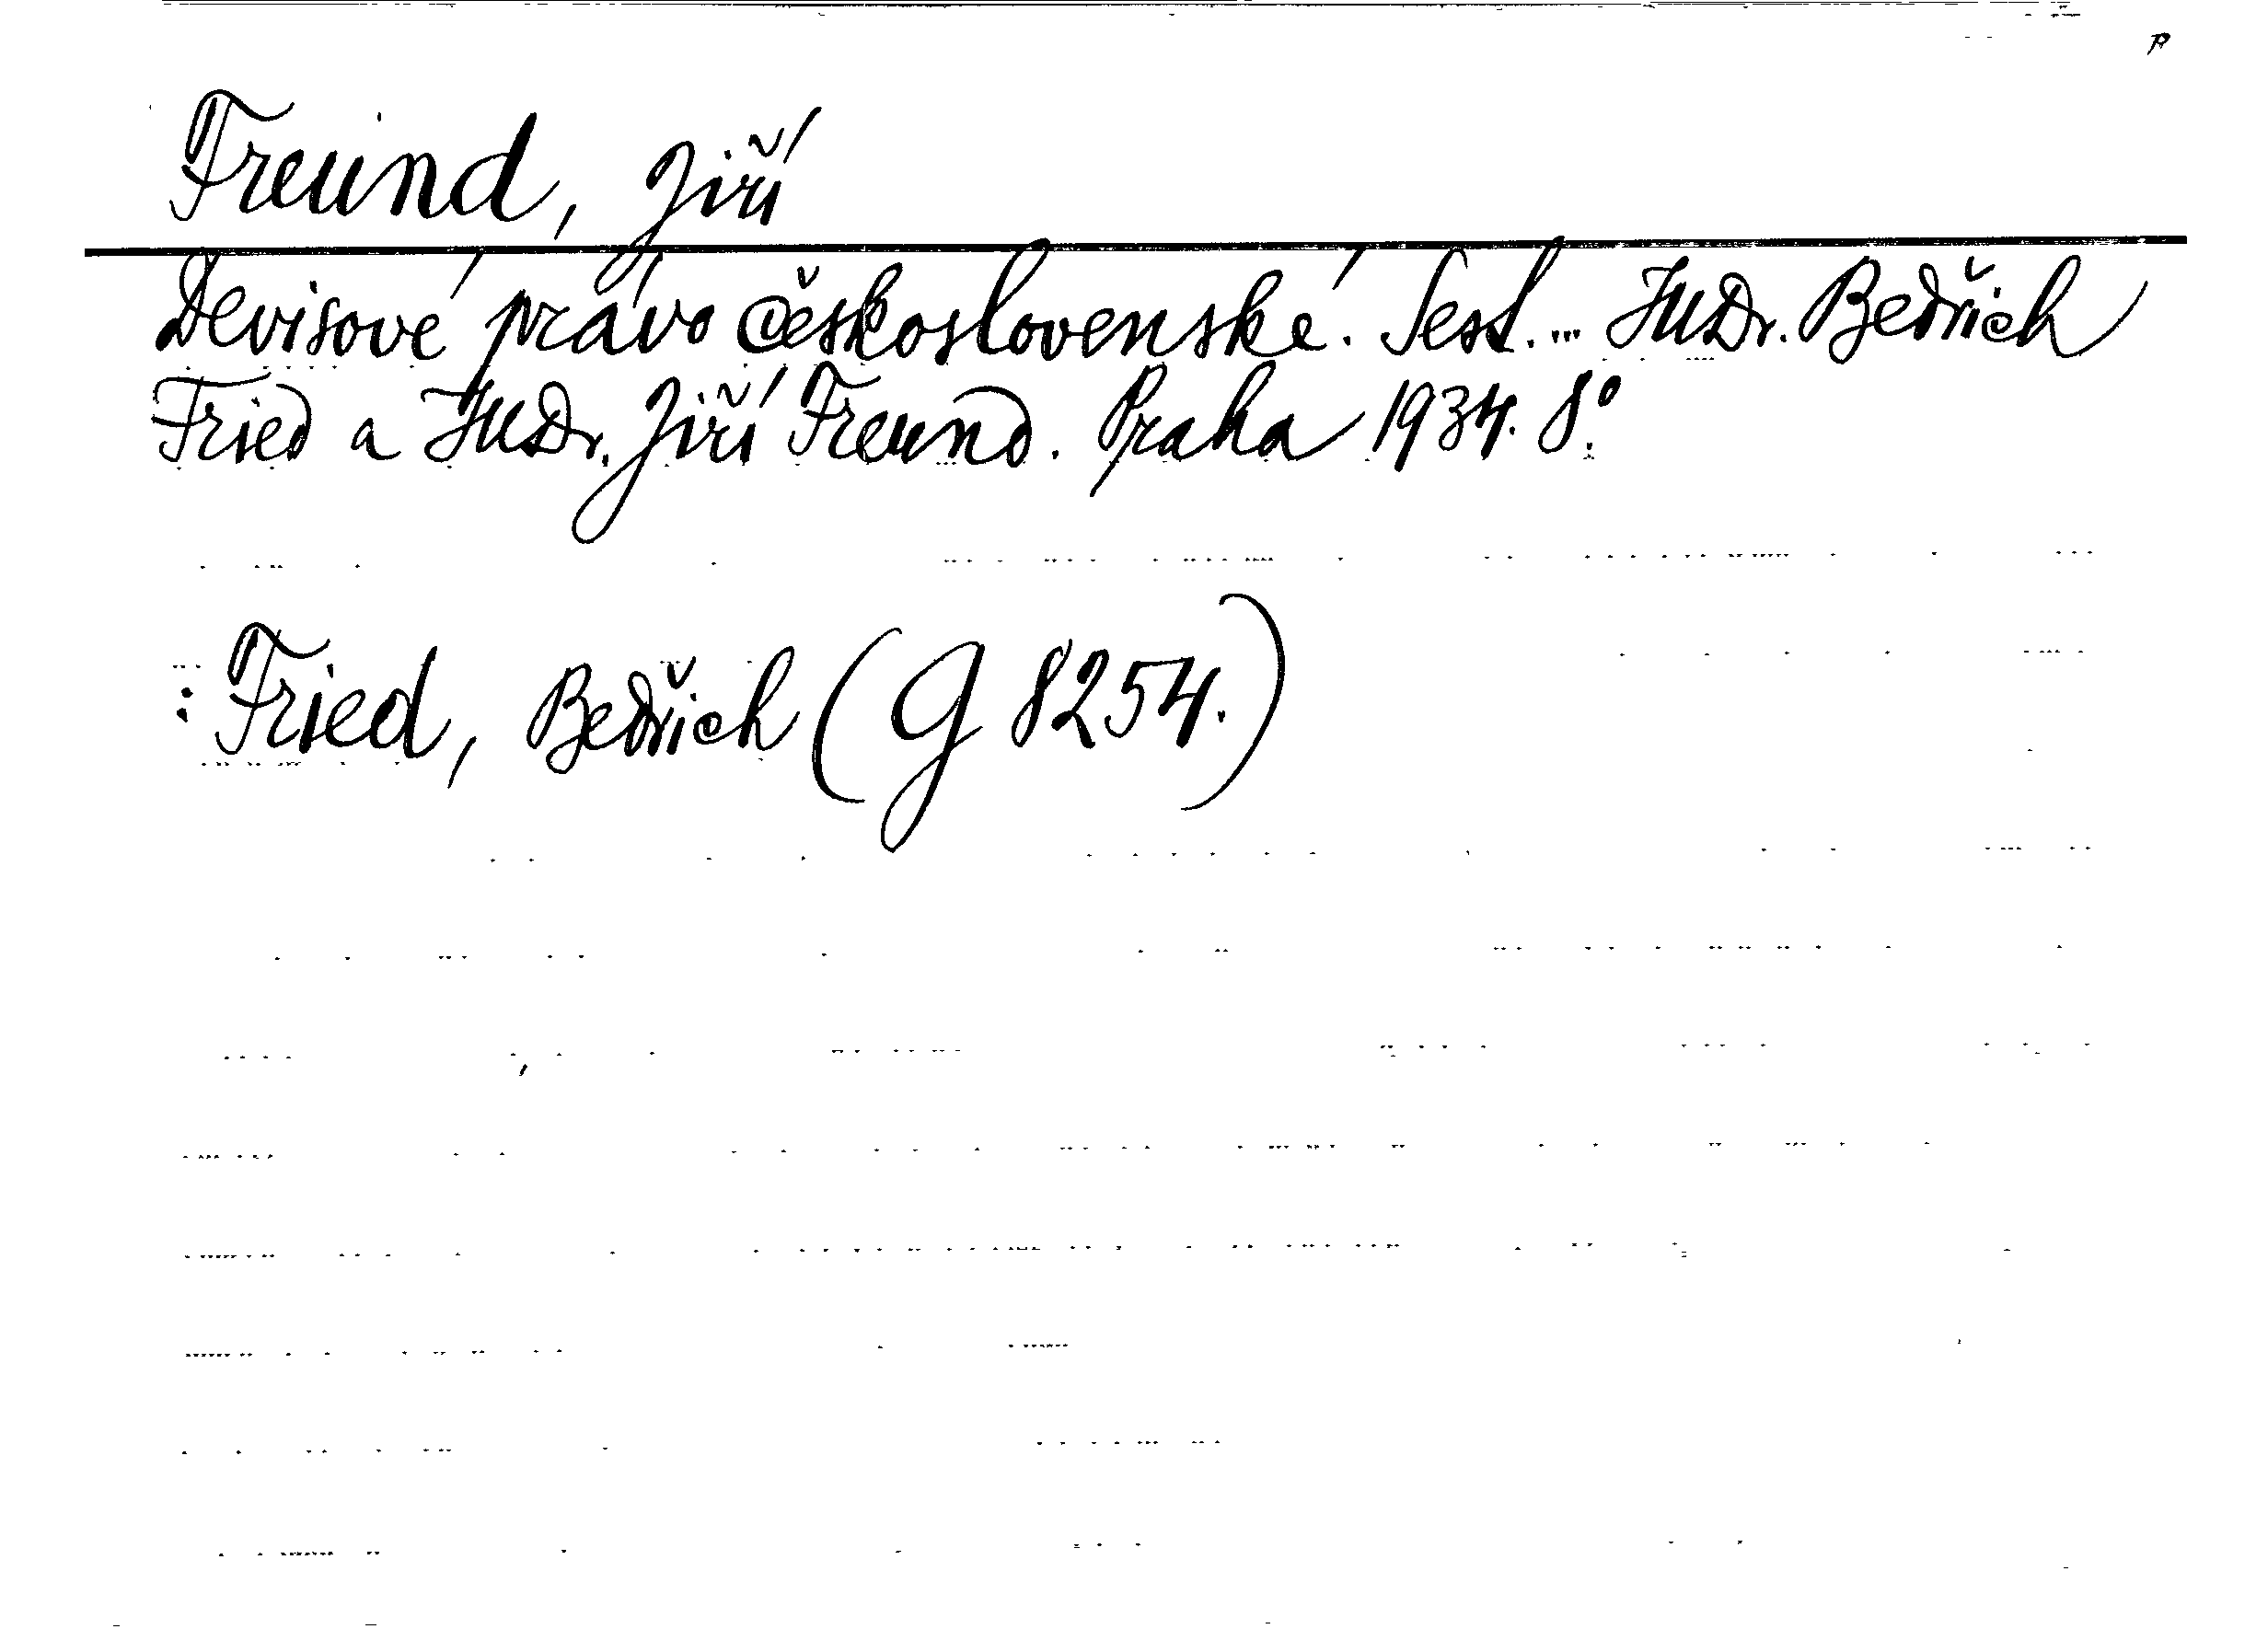 Freund, Jiří
Devisové právo československé. Sest. ... JUDr. Bedřich
Fried a JUDr. Jiří Freund. Praha 1934. 8°.
: Fried, Bedřich (G 8254.)